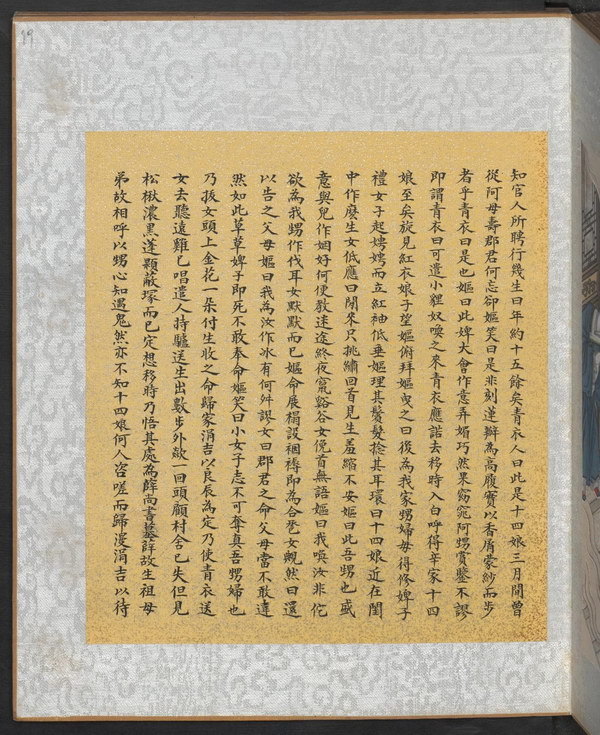 39
知官人所聘行幾生曰年約十五餘矣青衣人曰此是十四娘三月間曾
從阿母壽郡君何忘卻嫗笑曰是非刻蓮瓣為高履實以香屑蒙紗而步
者乎青衣曰是也嫗曰此婢大會作意弄媚巧然果窈窕阿甥賞鑒不謬
即謂青衣曰可遣小貍奴喚之來青衣應諾去移時入白呼得辛家十四
娘至矣旋見紅衣娘子望嫗俯拜嫗曳之曰後為我家甥婦毋得修婢子
禮女子起娉娉而立紅袖低垂嫗理其鬢髮捻其耳環曰十四娘近在閨
中作麼生女低應曰閒來只挑繡回首見生羞縮不安嫗曰此吾甥也盛
意與兒作姻好何便教迷途終夜竄谿谷女俛首無語嫗曰我喚汝非佗
欲為我甥作伐耳女默默而已嫗命展榻設裀褥即為合巹女覥然曰還
以告之父母嫗曰我為汝作冰有何舛謬女曰郡君之命父母當不敢違
然如此草草婢子即死不敢奉命嫗笑曰小女子志不可奪真吾甥婦也
乃拔女頭上金花一朵付生收之命歸家涓吉以良辰為定乃使青衣送
女去聽遠雞已唱遣人持驢送生出數步外歘一回頭顧村舍已失但見
松楸濃黑蓬顆蔽塚而已定想移時乃悟其處為薛尚書墓薛故生祖母
弟故相呼以甥心知遇鬼然亦不知十四娘何人咨嗟而歸漫涓吉以待